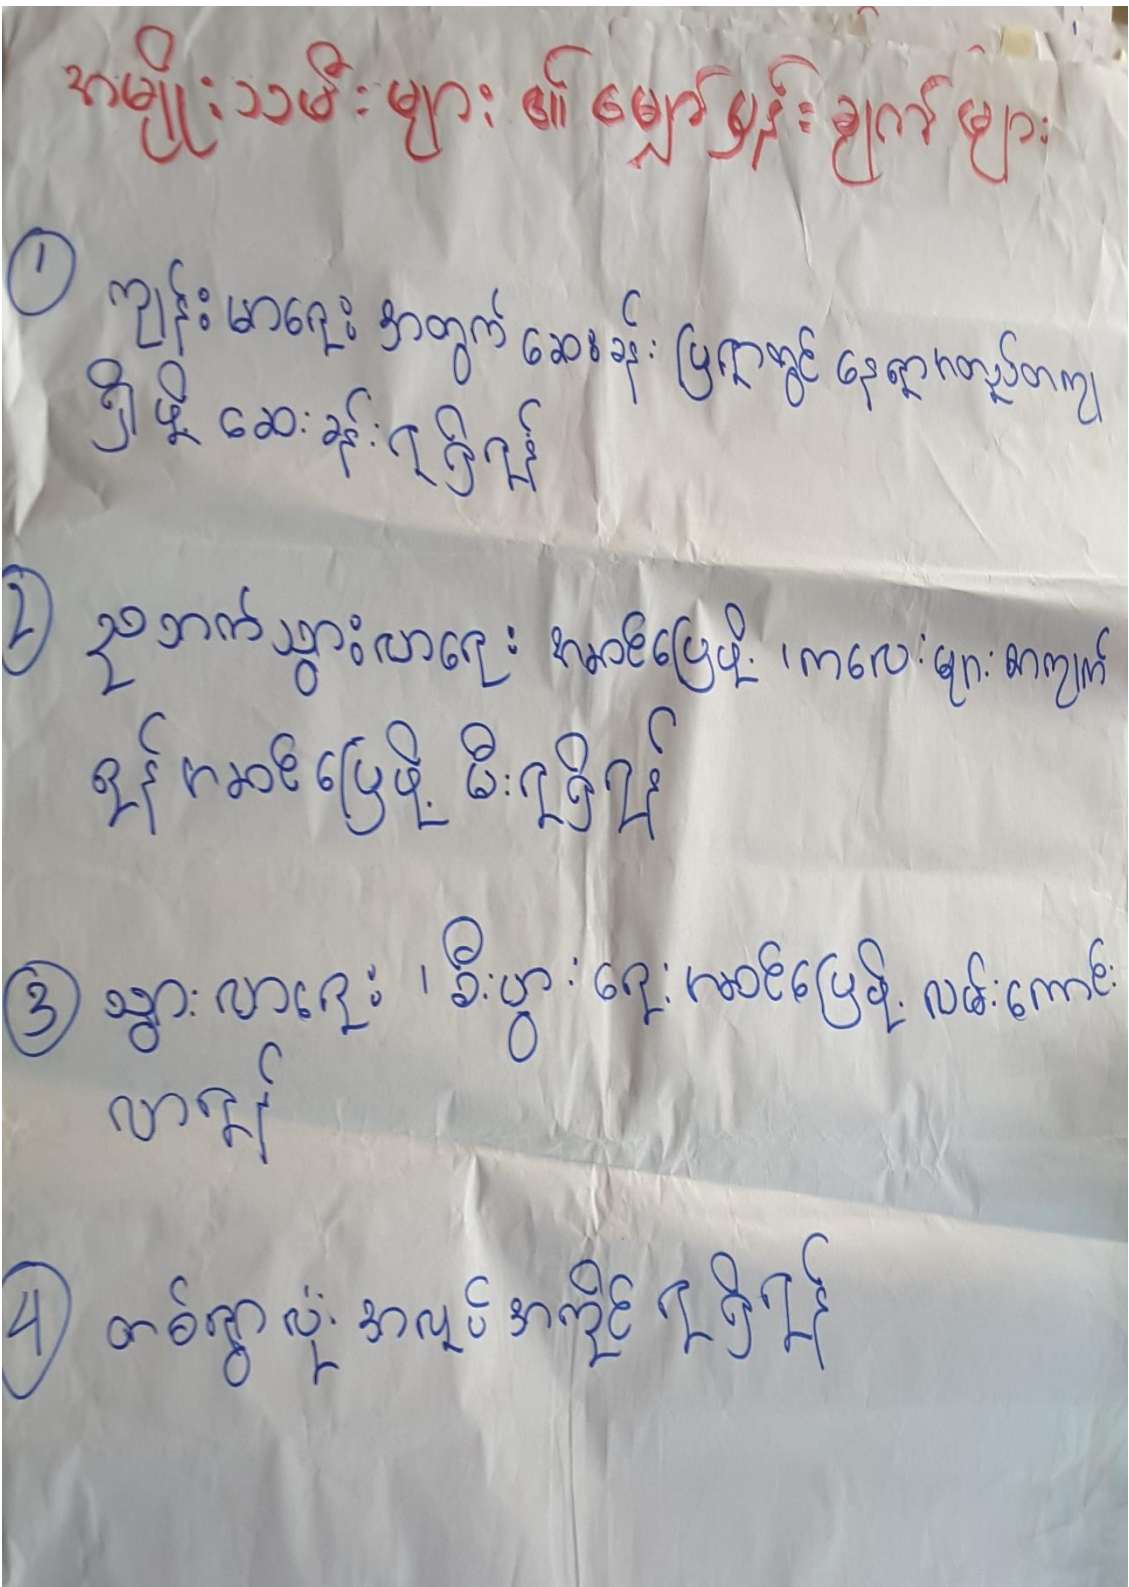 အမျိုးသမီးများ၏ မျှော်မှန်းချက်များ
① ကျန်းမာရေး အတွက် ဆေးခန်း ပြရာတွင် နေရာကျကျ
ရှိဖို့ ဆေးခန်းရရှိရန်
2 ညဘက်သွားလာရေး အဆင်ပြေဖို့၊ ကလေးများ စာကျက်
ရန် အဆင်ပြေဖို့ မီးရရှိရန်
③ သွားလာရေး၊ စီးပွားရေး အဆင်ပြေဖို့ လမ်းကောင်း
လာရန်
④ တစ်ရွာလုံး အလုပ်အကိုင် ရရှိရန်